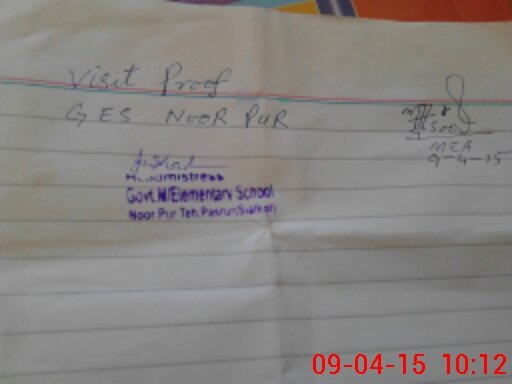 Visit Proof
GES NOOR PUR
MEA
9-4-15
Headmistress
Govt. M/Elementary School
Noor Pur Teh. Pasrur(Sialkot)
09-04-15 10:12